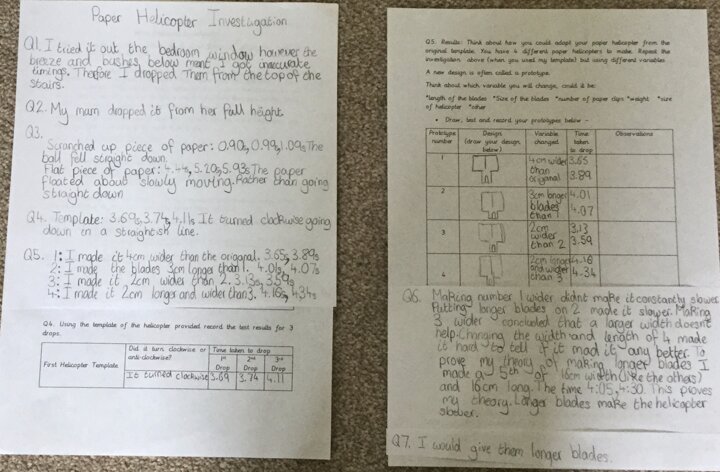 Paper Helicopter Investigation
Q1. I tried it out the bedroom window however the
breeze and bushes below ment I got inaccurate
timings. Therfore I dropped Them from the top of the
stairs.
Q2. My mum dropped it from her full height.
Q3.
Scrunched up piece of paper: 0.90s, 0.99s, 1.09s The
ball fell straight down.
Flat piece of paper: 4.44s, 5.20s, 5.93s The paper
floated about slowly moving. Rather than going
straight down
Q4. Template: 3.69s, 3.74s, 4.11s It turned clockwise going
down in a straightish line.
Q5. 1: I made it 4cm wider than the origanal. 3.65s, 3.89s
2: I made the blades 3cm longer than 1. 4.01s, 4.07s
3: I made it 2cm wider than 2. 3.13s, 3.59s
4: I made it 2cm longer and wider than 3. 4.16s, 4.34s
Q4. Using the template of the helicopter provided record the test results for 3
drops.
Did it turn clockwise or
anti-clockwise?
Time taken to drop
1st
Drop
2nd
Drop
3rd
Drop
First Helicopter Template
It turned clockwise
3.69
3.74
4.11
Q5. Results: Think about how you could adapt your paper helicopter from the
original template. You have 4 different paper helicopters to make. Repeat the
investigation above (when you used my template) but using different variables
A new design is often called a prototype.
Think about which variable you will change, could it be:
*length of the blades *Size of the blades *number of paper clips *weight *size
of helicopter *other
• Draw, test and record your prototypes below –
Prototype
number
Design
(draw your design
below)
Variable
changed
Time
taken
to drop
Observations
1
4cm wider
than
origanal
3.65
3.89
2
3cm longer
blades
than 1
4.01
4.07
3
2cm
wider
than 2
3.13
3.59
4
2cm longer
and wider
than 3
4.16
4.34
Q6. Making number 1 wider didnt make it constantly slower
Putting longer blades on 2 made it slower. Making
3 wider concluded that a larger width doesnt
help. Changing the width and length of 4 made
it hard to tell if it mad it any better. To
prove my theory of making longer blades I
made a 5th of 16cm width (like the others)
and 16cm long. The time 4:05, 4:30. This proves
my theory. Longer blades make the helicopter
slower.
Q7. I would give them longer blades.